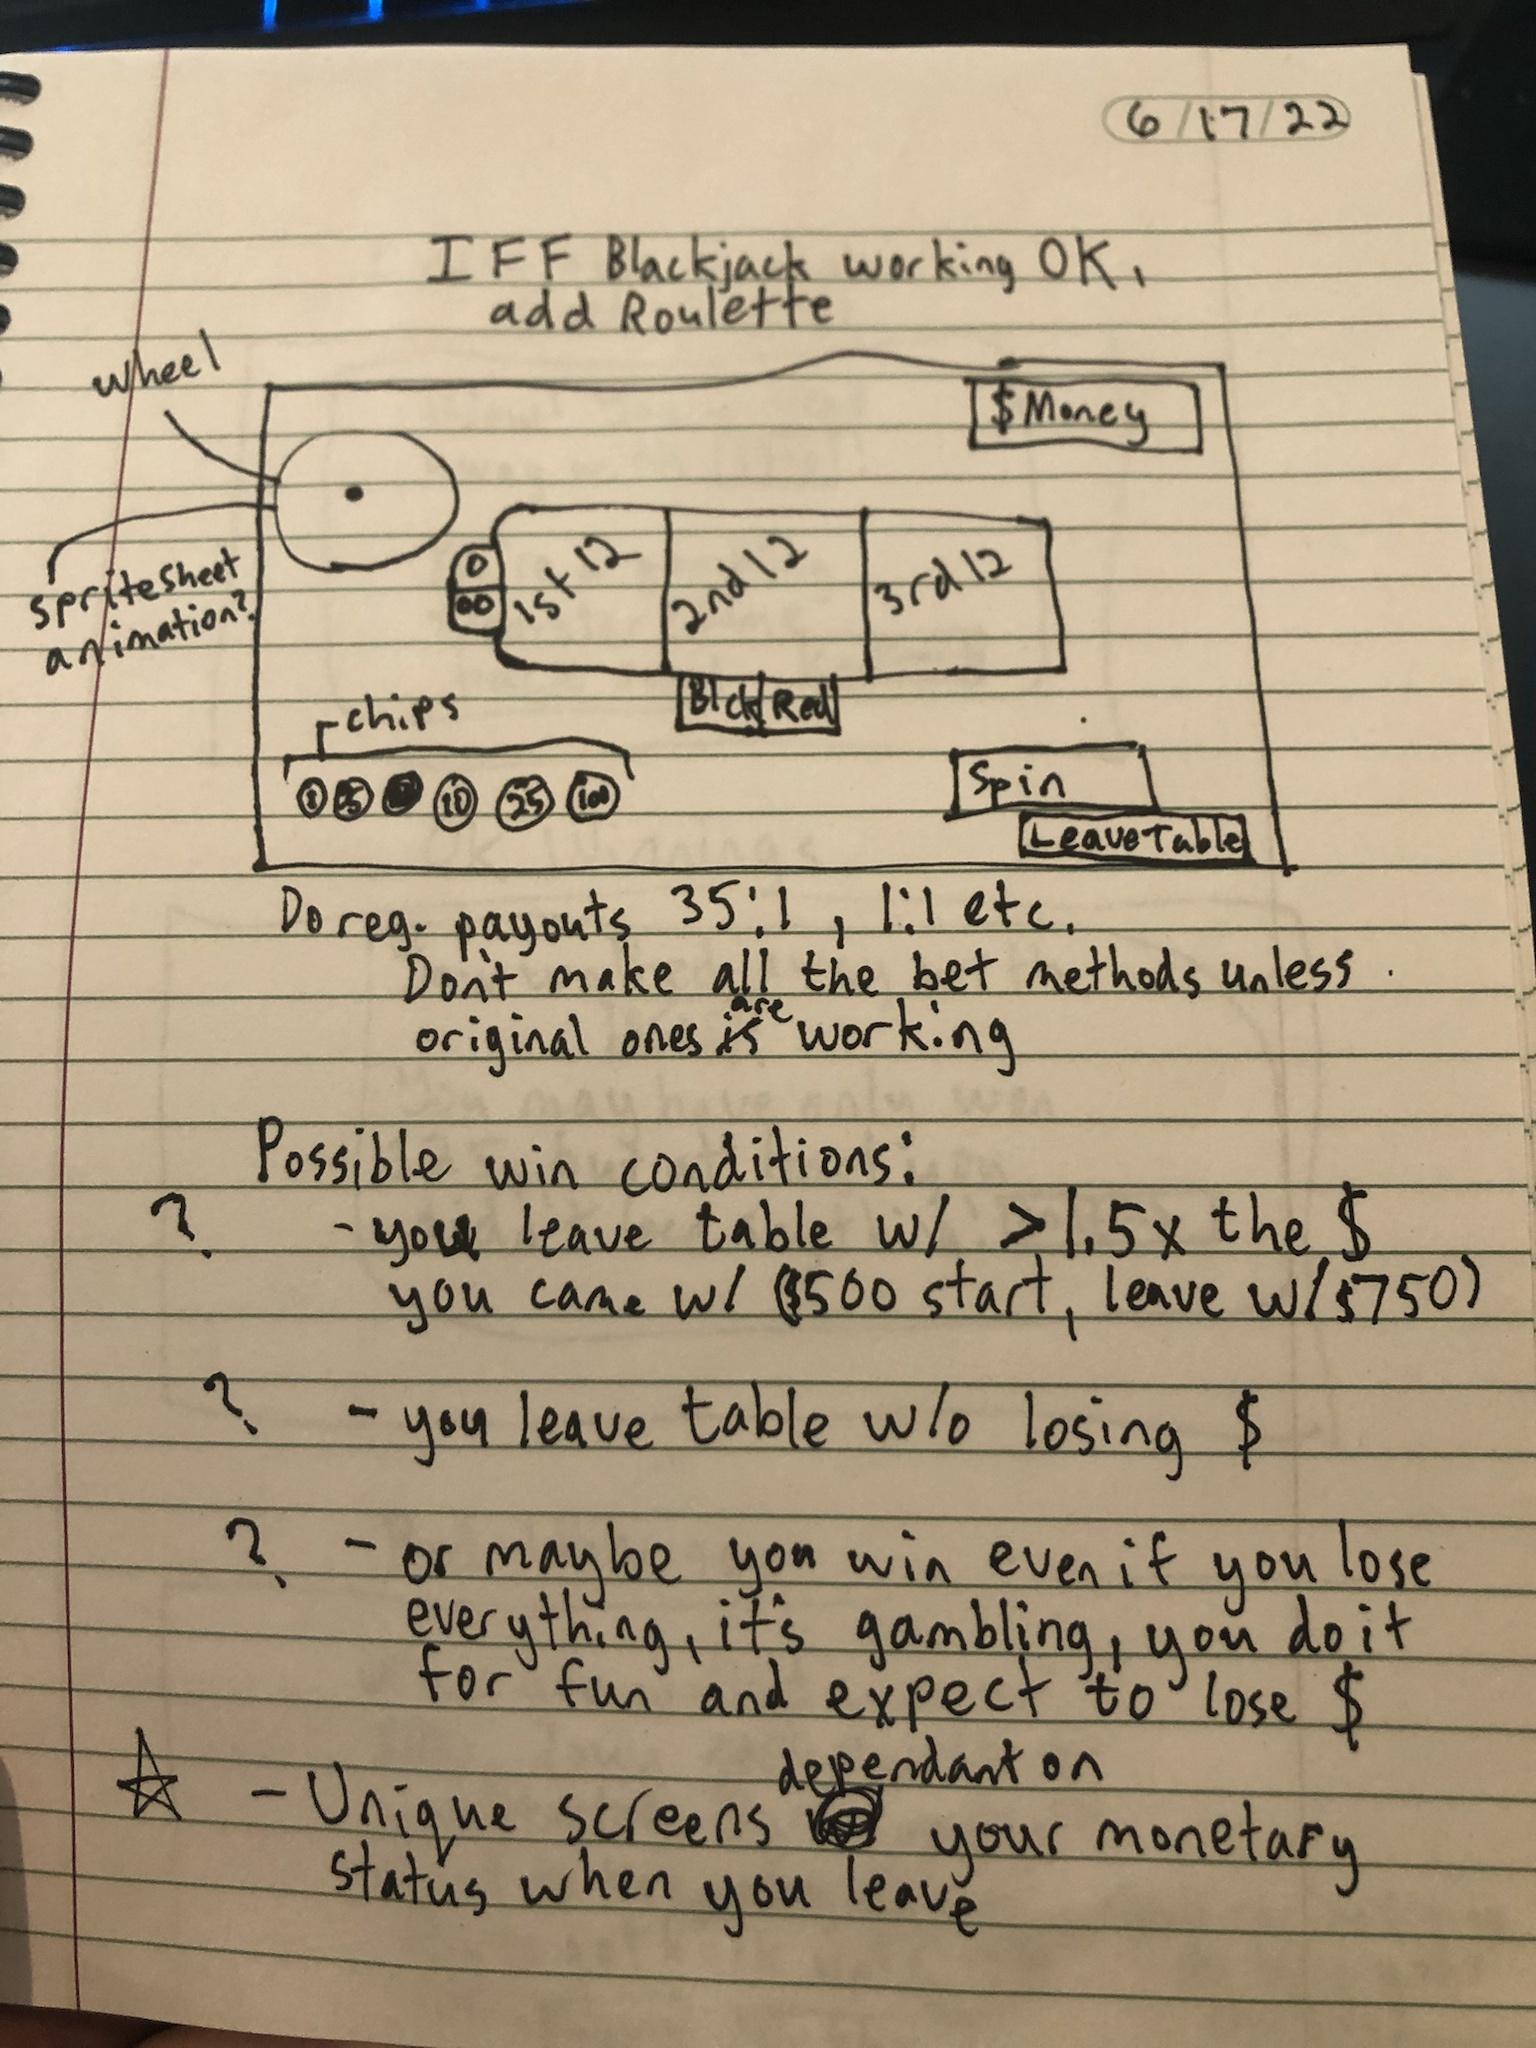 6/17/22
IFF Blackjack working OK,
add Roulette
wheel
$Money
spritesheet
animation?
0
00
1st 12
2nd 12
3rd 12
Blck/Red
chips
1 5 10 25 100
Spin
Leave Table
Do reg. payouts 35:1, 1:1 etc.
Don't make all the bet methods unless
are
original ones is working
Possible win conditions:
? - you leave table w/ >1.5x the $
you came w/ ($500 start, leave w/$750)
? - you leave table w/o losing $
? - or maybe you win even if you lose
everything, it's gambling, you do it
for fun and expect to lose $
dependant on
- Unique screens your monetary
status when you leave